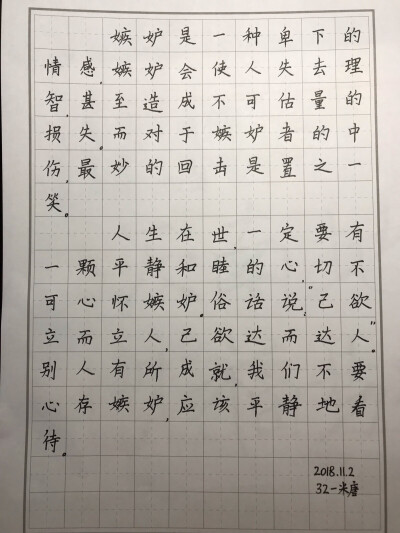 嫉妒是一种卑下的
情感,嫉妒会使人失去理
智,甚至造成不可估量的
损失。而对于嫉妒者的中
伤,最妙的回击是置之一
笑。
人生在世,一定要有
一颗平静和睦的心,切不
可心怀嫉妒。俗话说,“己欲
立而立人,己欲达而达人”。
别人有所成就,我们不要
心存嫉妒,应该平静地看
待。
2018.11.2
32一米唐